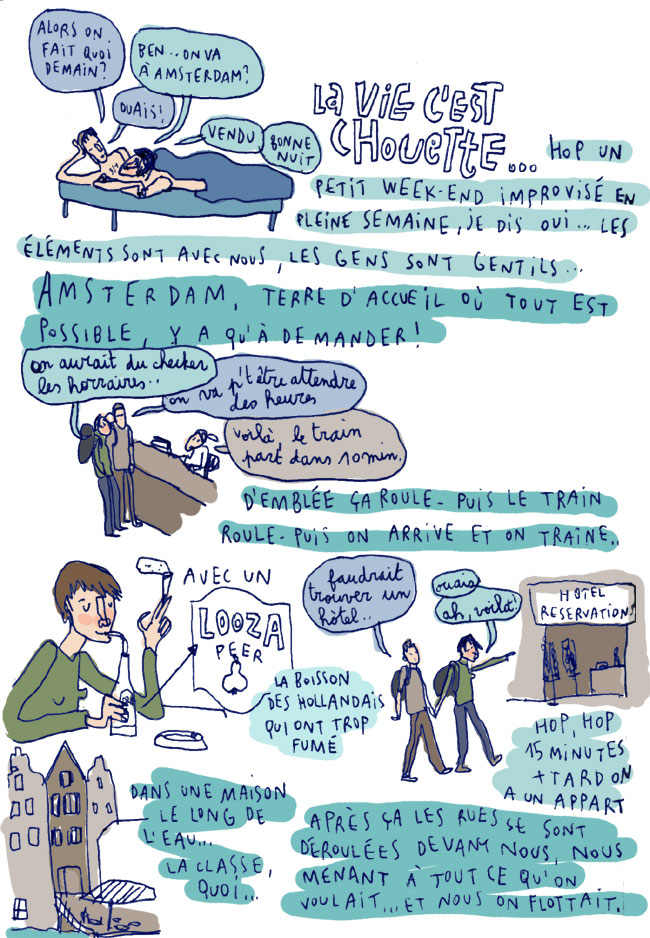 ALORS ON
FAIT QUOI
DEMAIN?
BEN... ON VA
À AMSTERDAM?
OUAIS!
VENDU
BONNE
NUIT
LA VIE C'EST
CHOUETTE...
HOP UN
PETIT WEEK-END IMPROVISÉ EN
PLEINE SEMAINE, JE DIS OUI... LES
ÉLÉMENTS SONT AVEC NOUS, LES GENS SONT GENTILS...
AMSTERDAM, TERRE D'ACCUEIL OÙ TOUT EST
POSSIBLE, Y A QU'À DEMANDER!
on aurait du checker
les horraires..
on va p't'être attendre
des heures
voilà, le train
part dans 10 min.
D'EMBLÉE ÇA ROULE - PUIS LE TRAIN
ROULE - PUIS ON ARRIVE ET ON TRAÎNE..
AVEC UN
LOOZA
PEER
LA BOISSON
DES HOLLANDAIS
QUI ONT TROP
FUMÉ
faudrait
trouver un
hôtel..
ouais
ah, voilà!
HOTEL
RESERVATIONS
HOP, HOP
15 MINUTES
+ TARD ON
A UN APPART
DANS UNE MAISON
LE LONG DE
L'EAU...
LA CLASSE,
QUOI...
APRÈS ÇA LES RUES SE SONT
DÉROULÉES DEVANT NOUS, NOUS
MENANT À TOUT CE QU'ON
VOULAIT... ET NOUS ON FLOTTAIT.